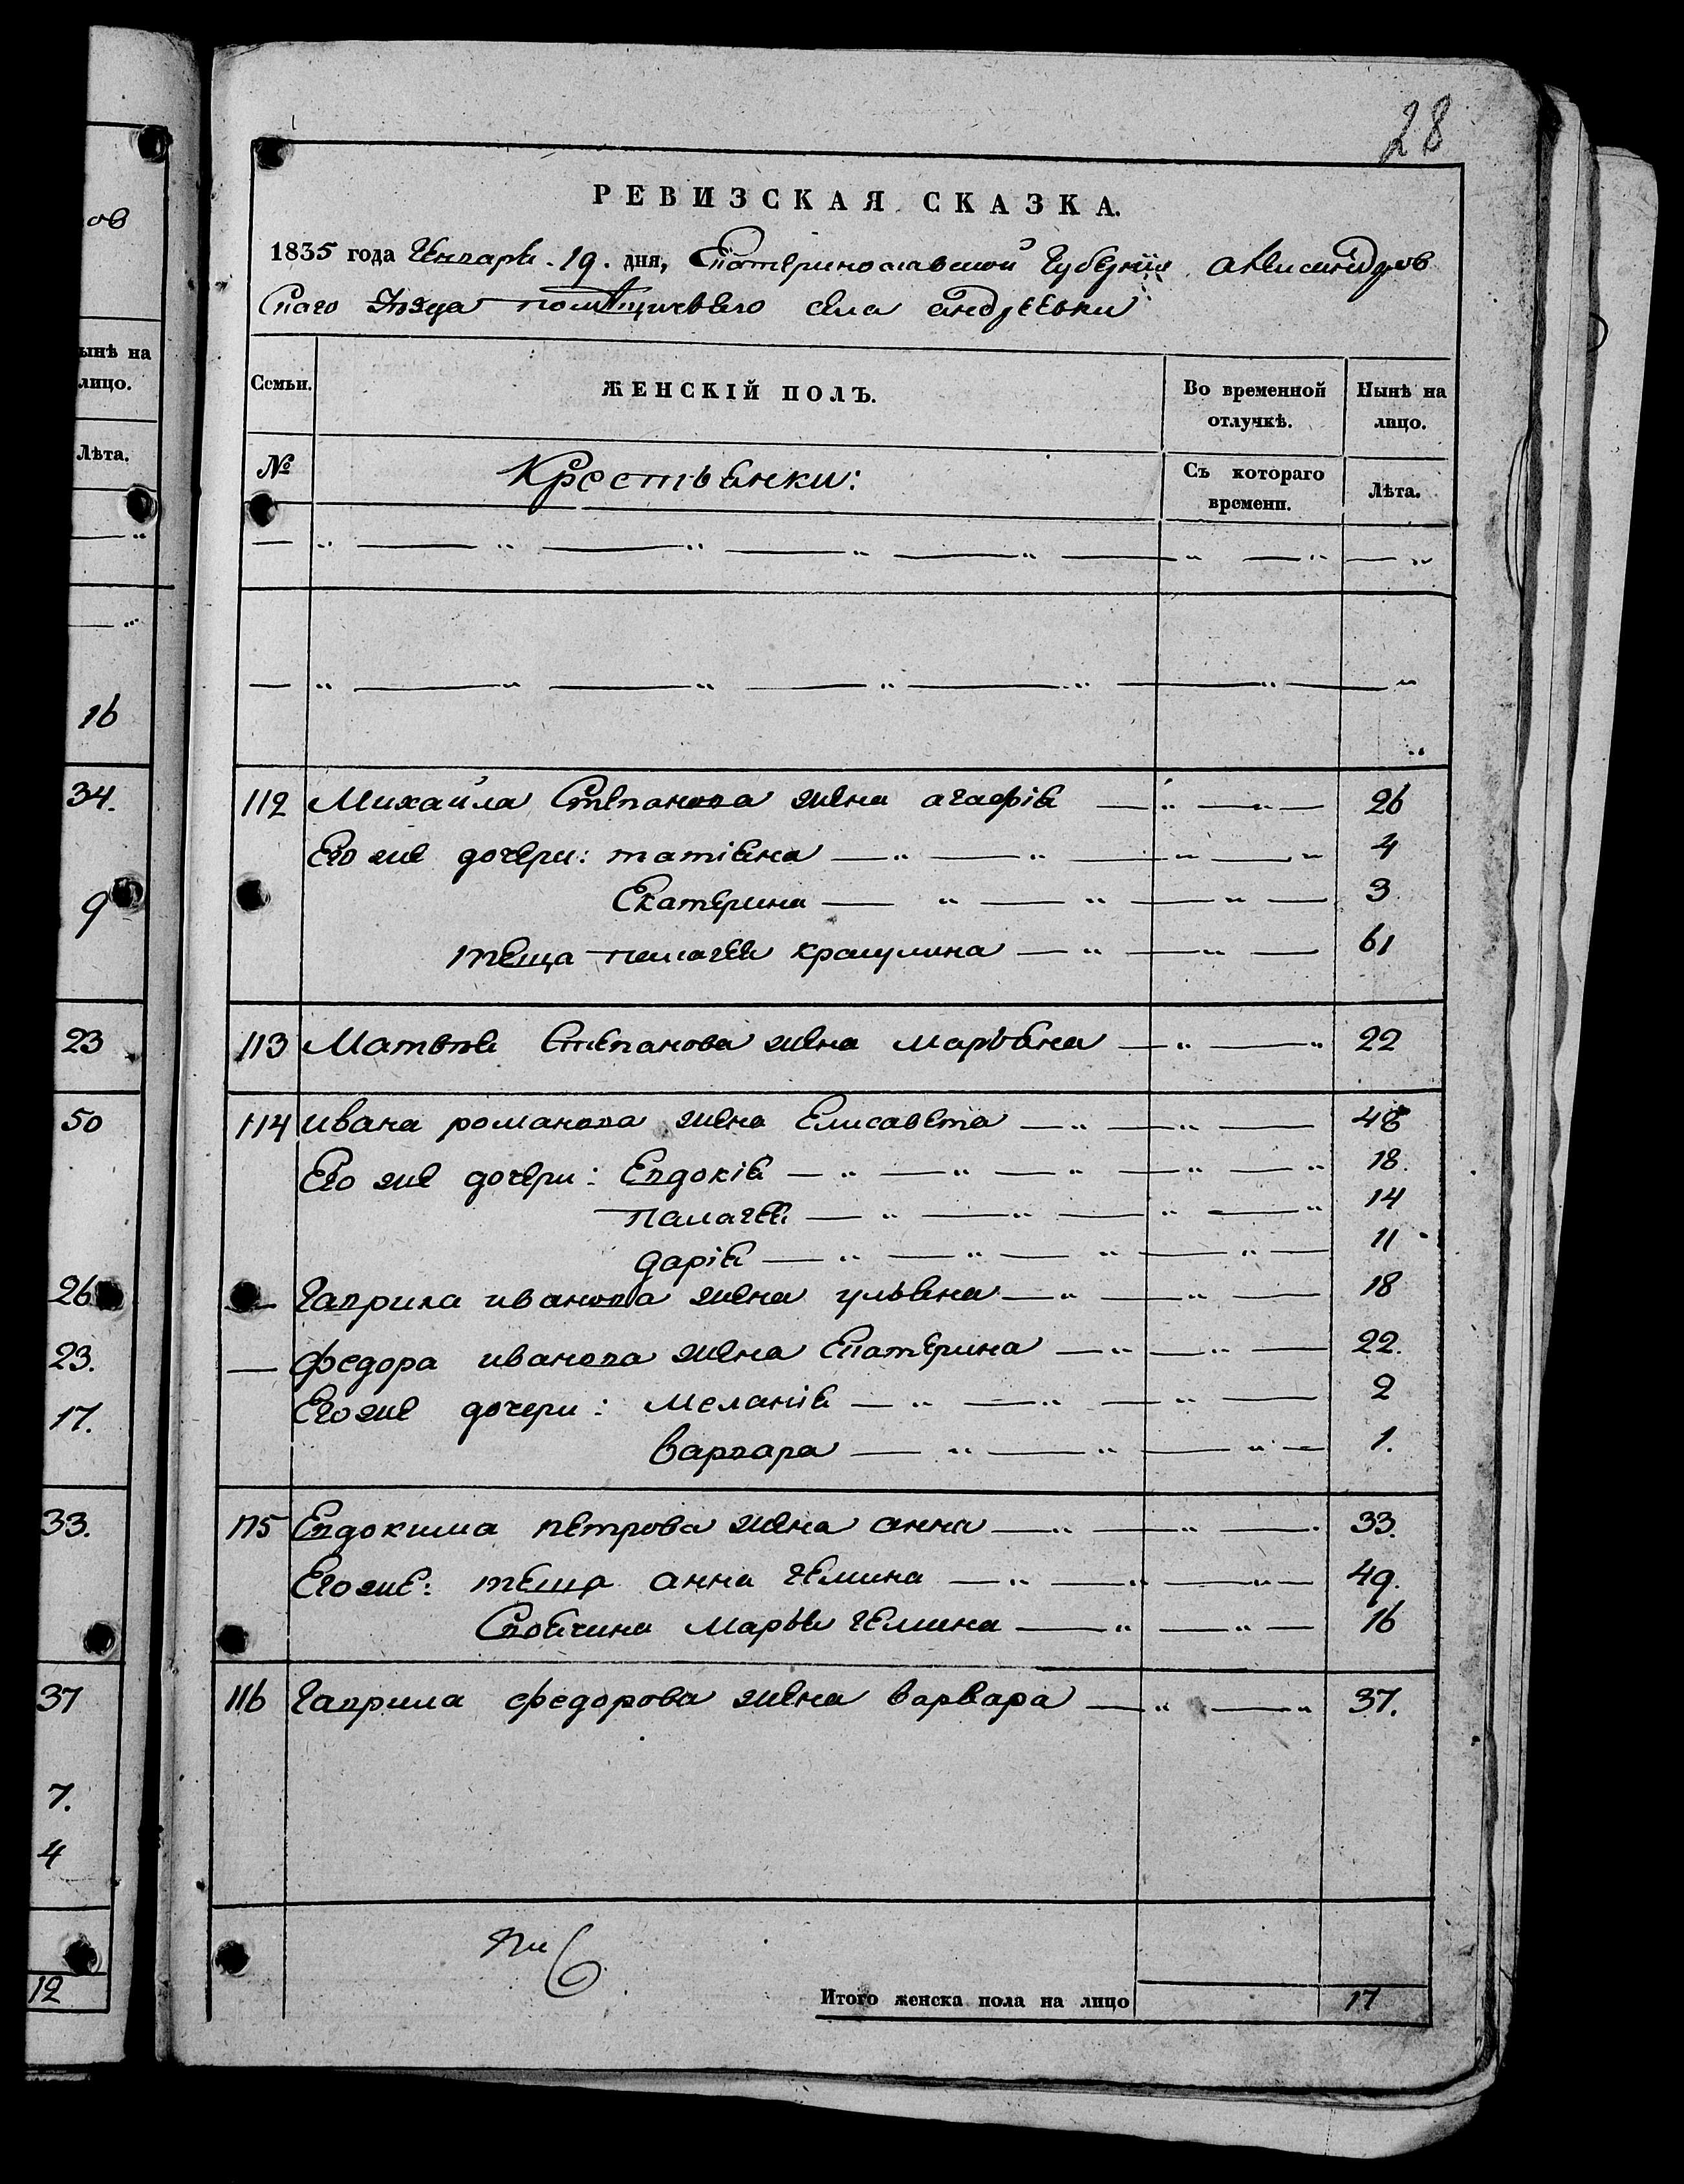 28
РЕВИЗСКАЯ СКАЗКА.
1835 года Генваря. 19. дня, Екатеринославской Губернiи Александров
скаго Уѣзда помѣщичьяго села андреевки
Семьи.
ЖЕНСКIЙ ПОЛЪ.
Во временной отлучкѣ.
Нынѣ на лицо.
№
Крестьянки:
Съ котораго времени.
Лѣта.
112 Михайла Степанова жена агафiя 26
Его же дочери: татiяна 4
Екатерина 3
теща пелагея 61
113 Матвѣя Степанова жена марьяна 22
114 ивана романова жена Елисавета 48
Его же дочери: Евдокiя 18.
Палагея 14
дарiя 11
Гаврила иванова жена ульяна 18
федора иванова жена Екатерина 22.
Его же дочери: меланiя 2
варвара 1.
115 Евдокима петрова жена анна 33.
Его же: теща анна 49.
Своячина марья 16
116 Гаврила федорова жена варвара 37.
Итого женска пола на лицо 17
ов
ынѣ на
лицо.
Лѣта.
16
34.
9
23
50
26
23.
17.
33.
37
7.
4
12